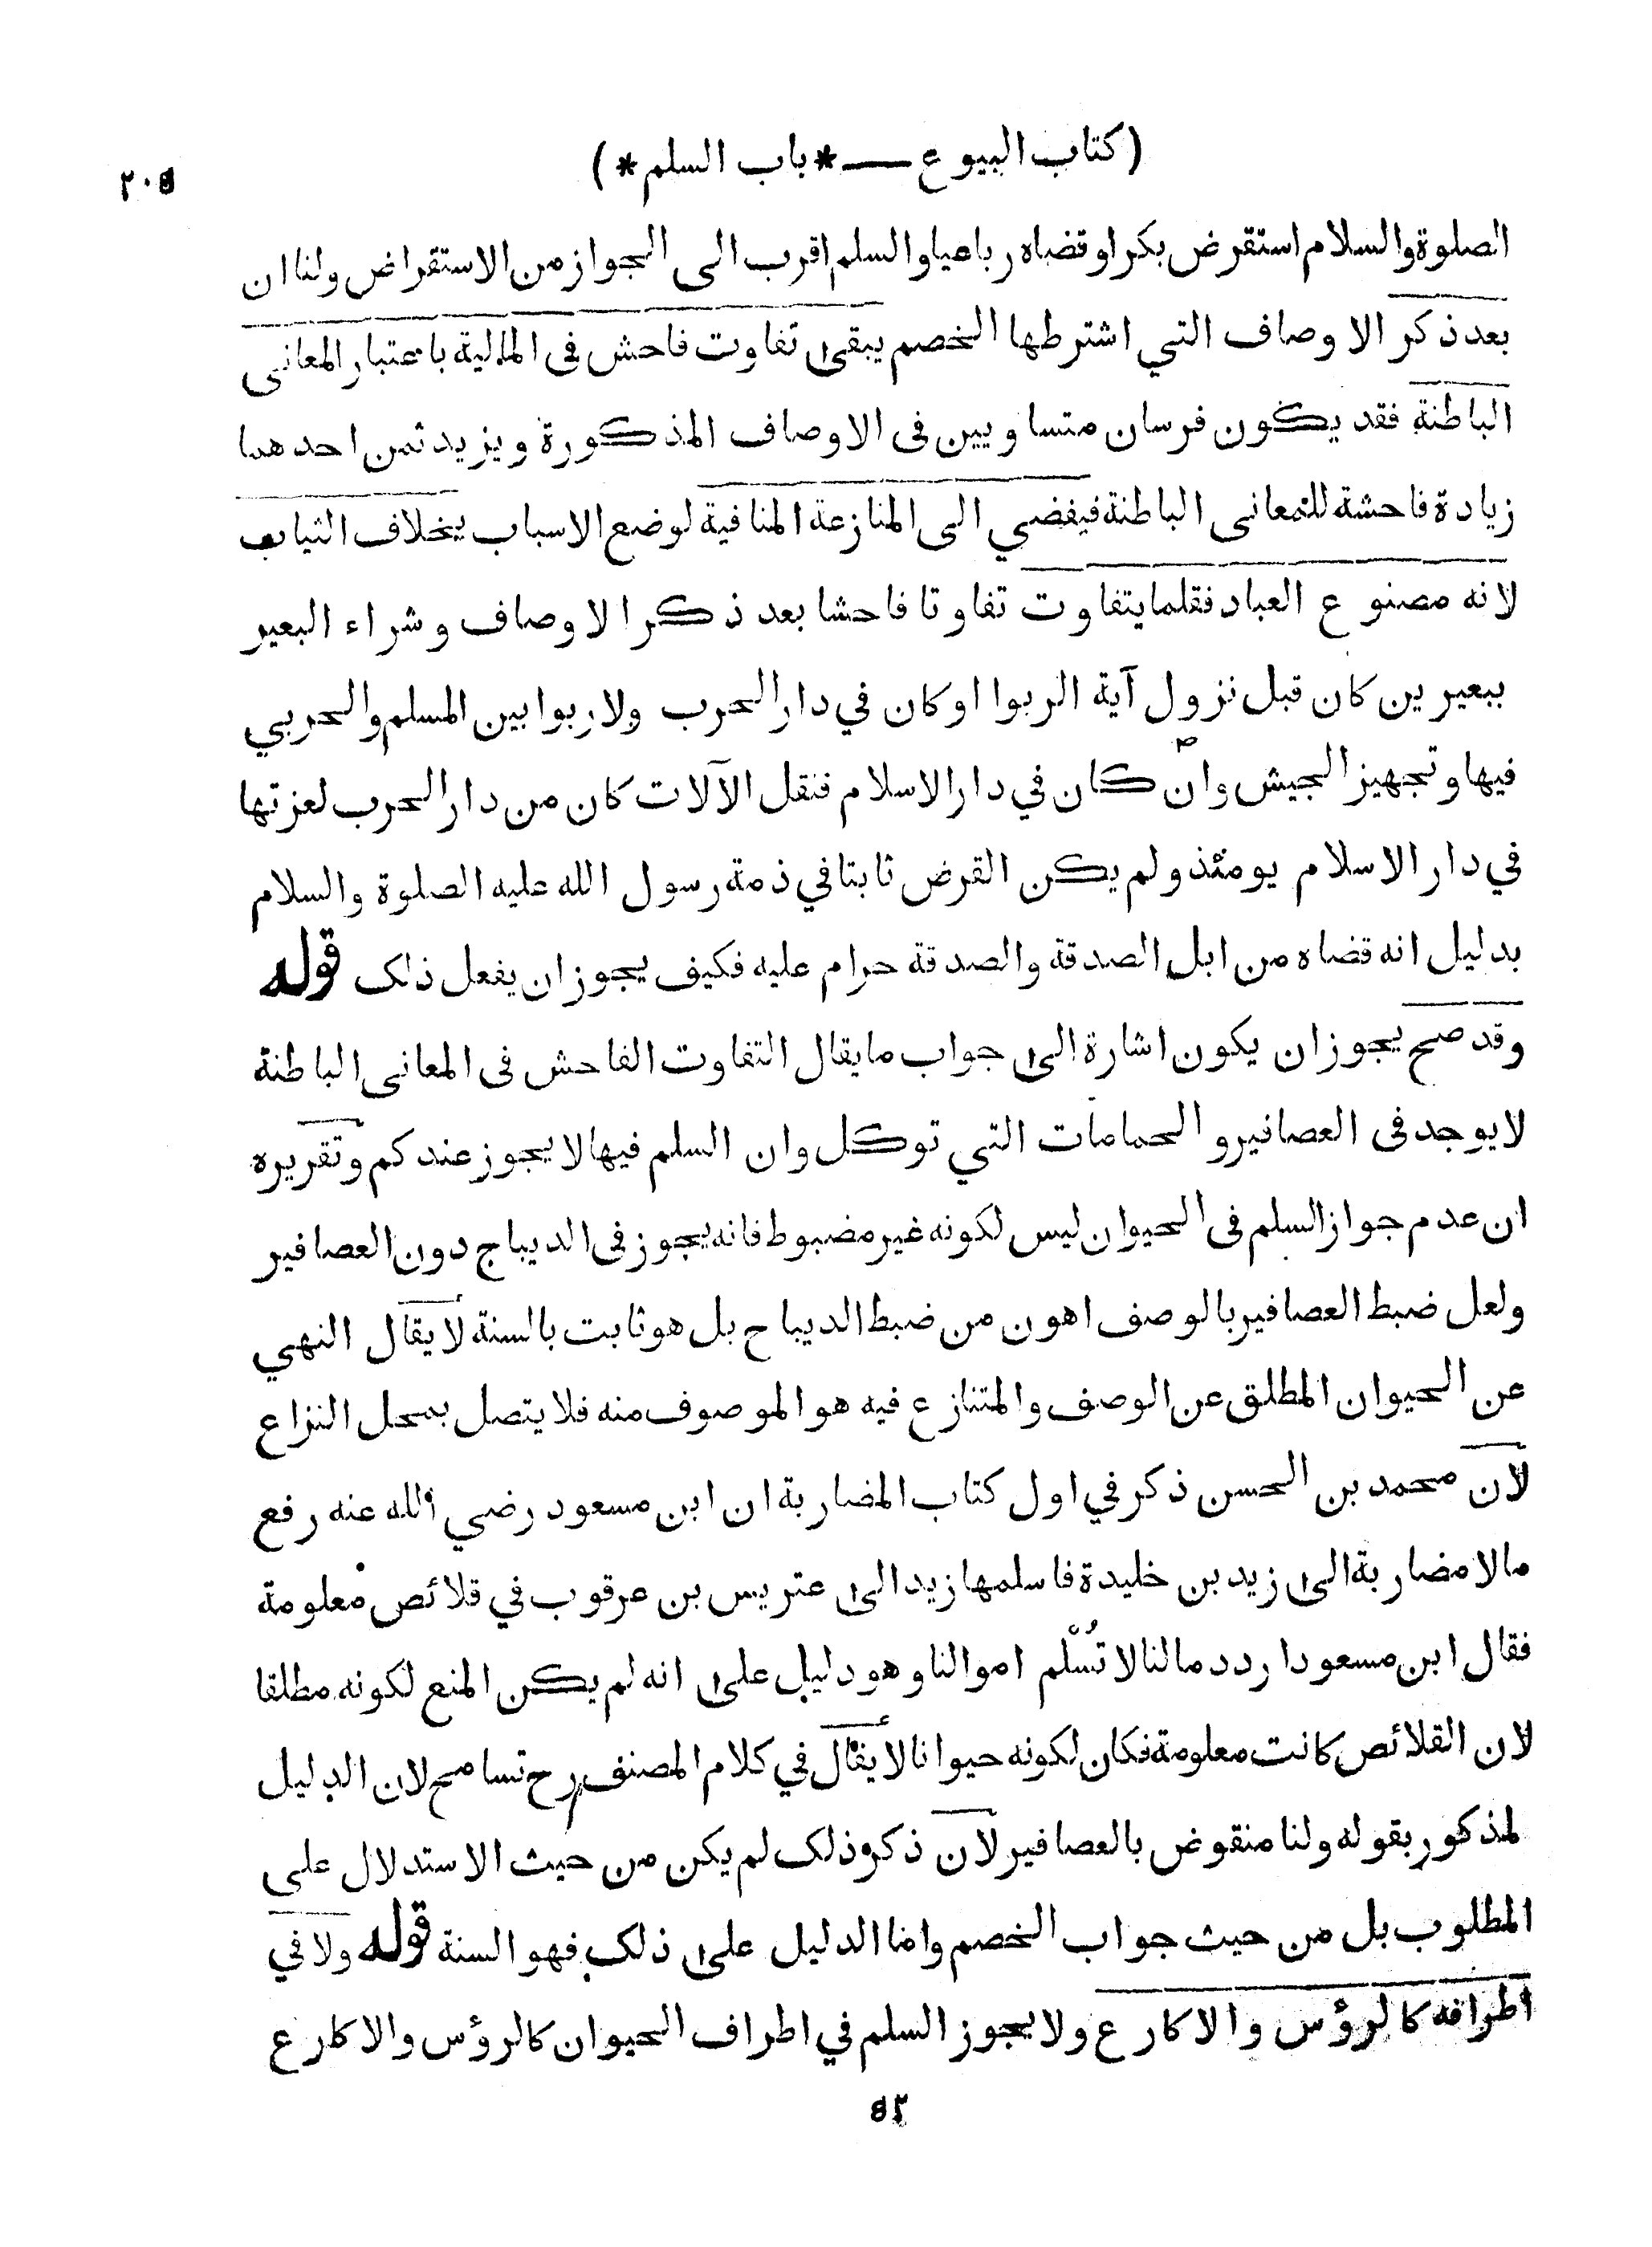 (كتاب البيوع — *باب السلم*)
٢٠٥
الصلوة والسلام استقرض بكرا وقضاه رباعيا والسلم اقرب الى الجواز من الاستقراض ولنا ان
بعد ذكر الاوصاف التي اشترطها الخصم يبقى تفاوت فاحش فى المالية باعتبار المعانى
الباطنة فقد يكون فرسان متساويين فى الاوصاف المذكورة ويزيد ثمن احدهما
زيادة فاحشة للمعانى الباطنة فيفضي الى المنازعة المنافية لوضع الاسباب بخلاف الثياب
لانه مصنوع العباد فقلما يتفاوت تفاوتا فاحشا بعد ذكر الاوصاف وشراء البعير
ببعيرين كان قبل نزول آية الربوا او كان في دار الحرب ولا ربوا بين المسلم والحربي
فيها وتجهيز الجيش وان كان في دار الاسلام فنقل الآلات كان من دار الحرب لعزتها
في دار الاسلام يومئذ ولم يكن القرض ثابتا في ذمة رسول الله عليه الصلوة والسلام
بدليل انه قضاه من ابل الصدقة والصدقة حرام عليه فكيف يجوز ان يفعل ذلك قوله
وقد صح يجوز ان يكون اشارة الى جواب ما يقال التفاوت الفاحش فى المعانى الباطنة
لا يوجد فى العصافير والحمامات التي توكل وان السلم فيها لا يجوز عندكم وتقريره
ان عدم جواز السلم فى الحيوان ليس لكونه غير مضبوط فانه يجوز فى الديباج دون العصافير
ولعل ضبط العصافير بالوصف اهون من ضبط الديباج بل هو ثابت بالسنة لا يقال النهي
عن الحيوان المطلق عن الوصف والمتنازع فيه هو الموصوف منه فلا يتصل بمحل النزاع
لان محمد بن الحسن ذكر في اول كتاب المضاربة ان ابن مسعود رضي الله عنه رفع
مالا مضاربة الى زيد بن خليدة فاسلمها زيد الى عتريس بن عرقوب في قلائص معلومة
فقال ابن مسعود اردد مالنا لا تُسْلم اموالنا وهو دليل على انه لم يكن المنع لكونه مطلقا
لان القلائص كانت معلومة فكان لكونه حيوانا لا يقال في كلام المصنف رح تسامح لان الدليل
لمذكور بقوله ولنا منقوض بالعصافير لان ذكره ذلك لم يكن من حيث الاستدلال على
المطلوب بل من حيث جواب الخصم واما الدليل على ذلك فهو السنة قوله ولا في
اطرافه كالرؤس والاكارع ولا يجوز السلم في اطراف الحيوان كالرؤس والاكارع
٥٢